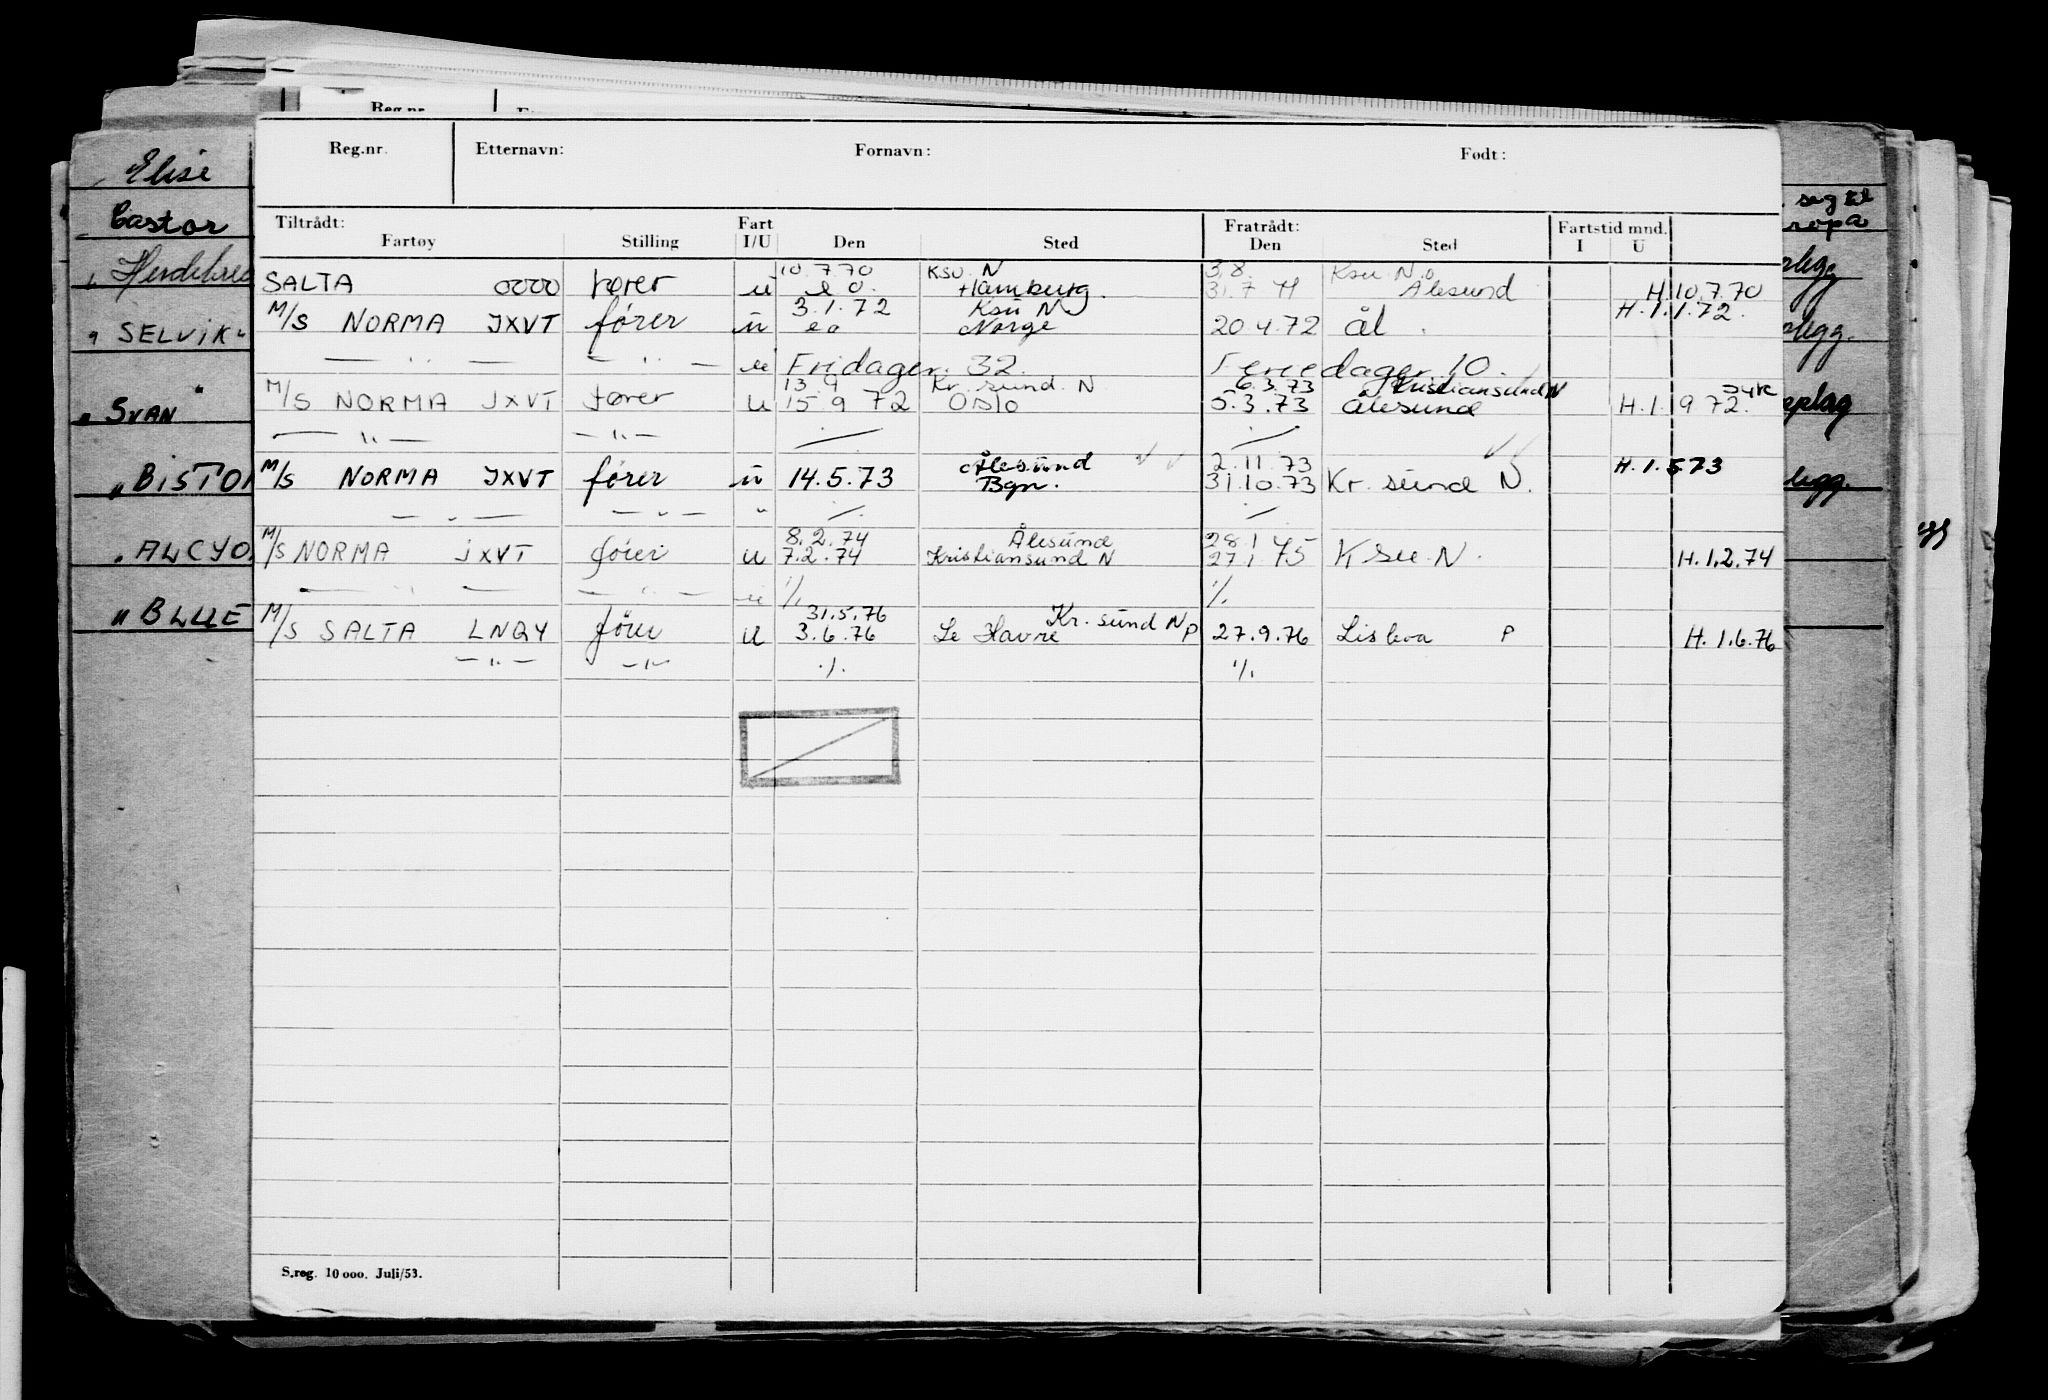 Reg.nr.
Reg.nr. Etternavn: Fornavn: Født:
Tiltrådt: Fratrådt: Fartstid mnd.
Fartøy Stilling Fart I/U Den Sted Den Sted I U
10.7.70 Ksu. N 3.8. Ksu. N.
SALTA OOOO fører u e o. Hamburg. 31.7 71 Ålesund H.10.7.70
3.1.72 Ksu N H.1.1.72.
M/S NORMA JXVT fører u eo Norge 20.4.72 ål.
— " — — " — u Fridager. 32. Feriedager 10.
13.9 Kr. sund. N 6.3.73 Kristiansund N
M/S NORMA JXVT fører u 15 9 72 Oslo 5.3.73 Ålesund H.1.9 72.
— " — — " — ./. ./.
Ålesund 2.11.73 H.1.5 73
M/S NORMA JXVT fører u 14.5.73 Bgn. 31.10.73 Kr. sund N.
— " — — " — " ./. ./.
8.2.74 Ålesund 28.1 75
M/S NORMA JXVT fører u 7.2.74 Kristiansund N 27.1 75 Ksu N. H.1.2.74
— " — — " — u ./. ./.
31.5.76 Kr. sund N
M/S SALTA LNQY fører u 3.6.76 Le Havre P 27.9.76 Lisboa P H.1.6.76
— " — — " — ./. ./.
S.reg. 10 000. Juli/53.
Elise
Castor
SELVIK
" SVAN "
" BISTO
" ALCYO
" BLUE
seg til
ropa
legg
legg.
pplag
legg.